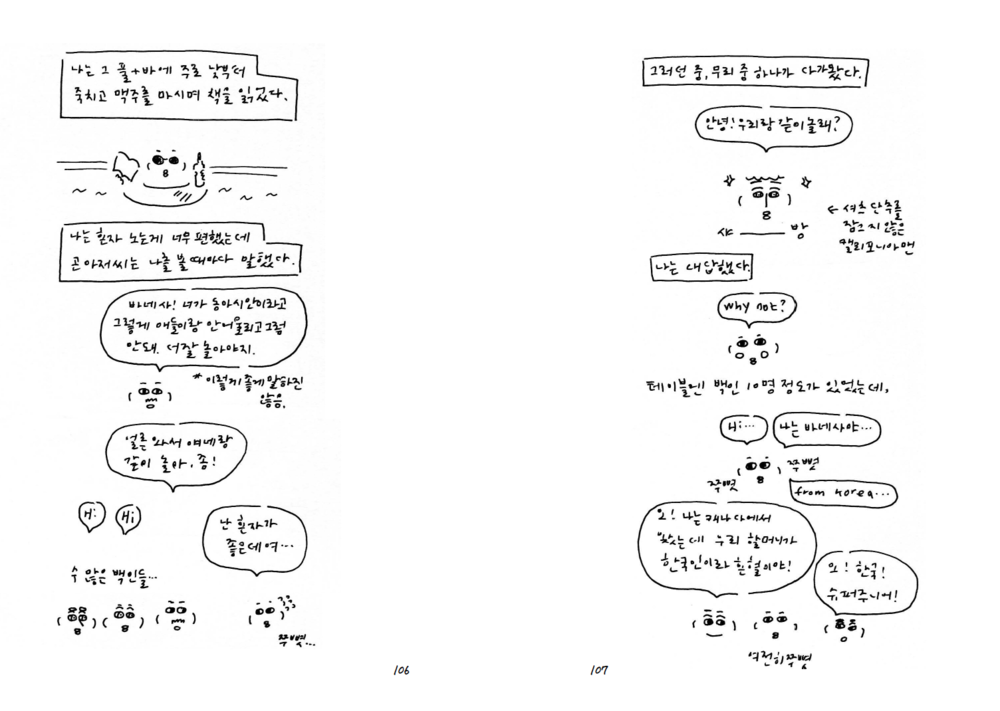 나는 그 풀+바에 주로 낮부터
죽치고 맥주를 마시며 책을 읽었다.
나는 혼자 노는게 너무 편했는데
곤아저씨는 나를 볼때마다 말했다.
바네사! 너가 동아시안이라고
그렇게 애들이랑 안어울리고그럼
안돼. 더잘 놀아야지.
*이렇게 좋게 말하진
않음.
얼른 와서 얘네랑
같이 놀아, 좀!
Hi
Hi
난 혼자가
좋은데여...
수 많은 백인들...
쭈뼛...
106
그러던 중, 무리 중 하나가 다가왔다.
안녕! 우리랑 같이놀래?
샤 방
← 셔츠 단추를
잠그지 않은
캘리포니아맨
나는 대답했다.
why not?
테이블엔 백인 10명 정도가 있었는데,
Hi...
나는 바네사야...
쭈뼛
쭈뼛
from korea...
오! 나는 캐나다에서
왔는데 우리 할머니가
한국인이라 혼혈이야!
오! 한국!
슈퍼주니어!
여전히쭈뼛
107